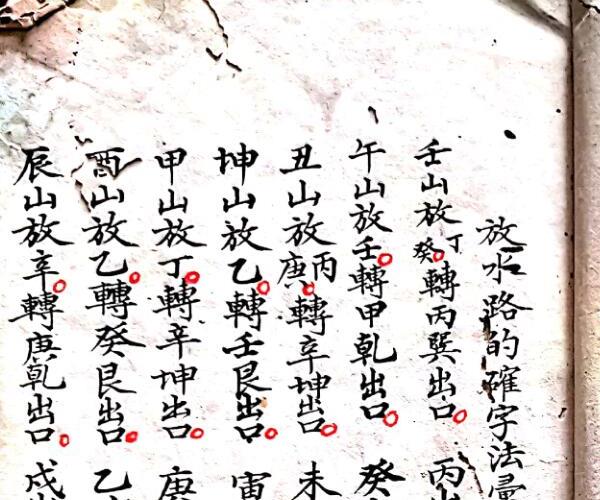 放水路的確字法
壬山放丁癸轉丙巽出口 丙
午山放壬轉甲乾出口 癸
丑山放丙庚轉辛坤出口 未
坤山放乙轉壬艮出口 寅
甲山放丁轉辛坤出口 庚
酉山放乙轉癸艮出口 乙
辰山放辛轉庚乾出口 戌